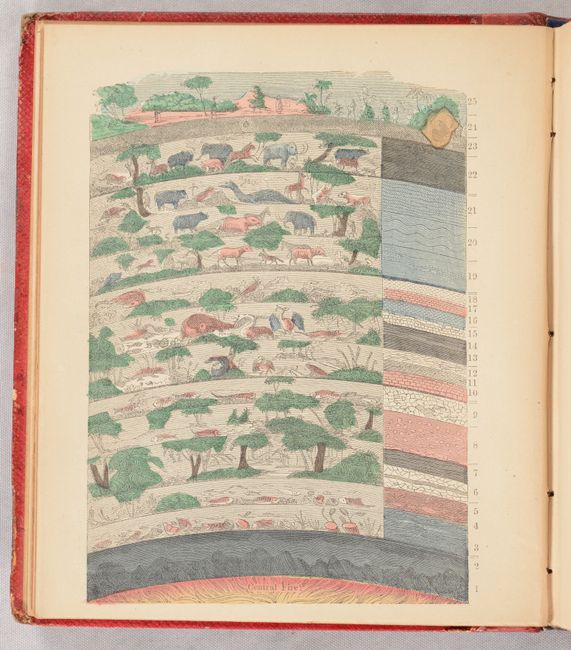 25
21
23
22
21
20
19
18
17
16
15
14
13
12
11
10
9
8
7
6
5
4
3
2
1
Central Fire